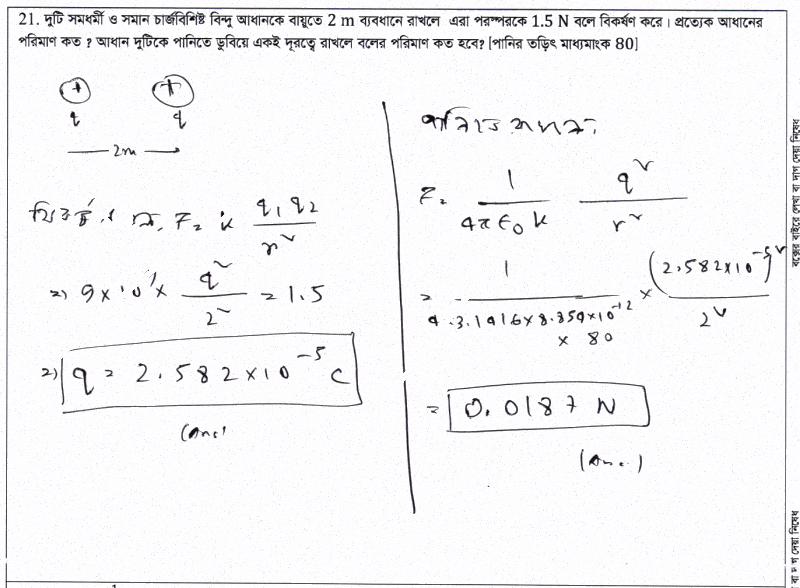 21. দুটি সমধর্মী ও সমান চার্জবিশিষ্ট বিন্দু আধানকে বায়ুতে 2 m ব্যবধানে রাখলে এরা পরস্পরকে 1.5 N বলে বিকর্ষণ করে। প্রত্যেক আধানের
পরিমাণ কত ? আধান দুটিকে পানিতে ডুবিয়ে একই দূরত্বে রাখলে বলের পরিমাণ কত হবে? [পানির তড়িৎ মাধ্যমাংক 80]
+ +
q q
2m
বল, F = k q₁ q₂ / r²
⇒ 9 × 10⁹ × q² / 2² = 1.5
⇒ q = 2.582 × 10⁻⁵ C
(Ans)
পানিতে
F = 1 / 4π ε₀ k q² / r²
= 1 / 4 · 3.1416 × 8.854 × 10⁻¹² × 80 × (2.582 × 10⁻⁵)² / 2²
= 0.0187 N
(Ans.)
বক্সের বাইরে লেখা বা দাগ দেয়া নিষেধ
দেয়া নিষেধ